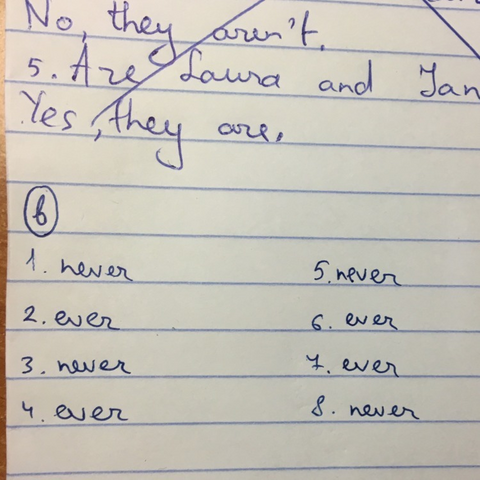 No, they aren't.
5. Are Laura and Jan
Yes, they are.
6
1. never
2. ever
3. never
4. ever
5. never
6. ever
7. ever
8. never